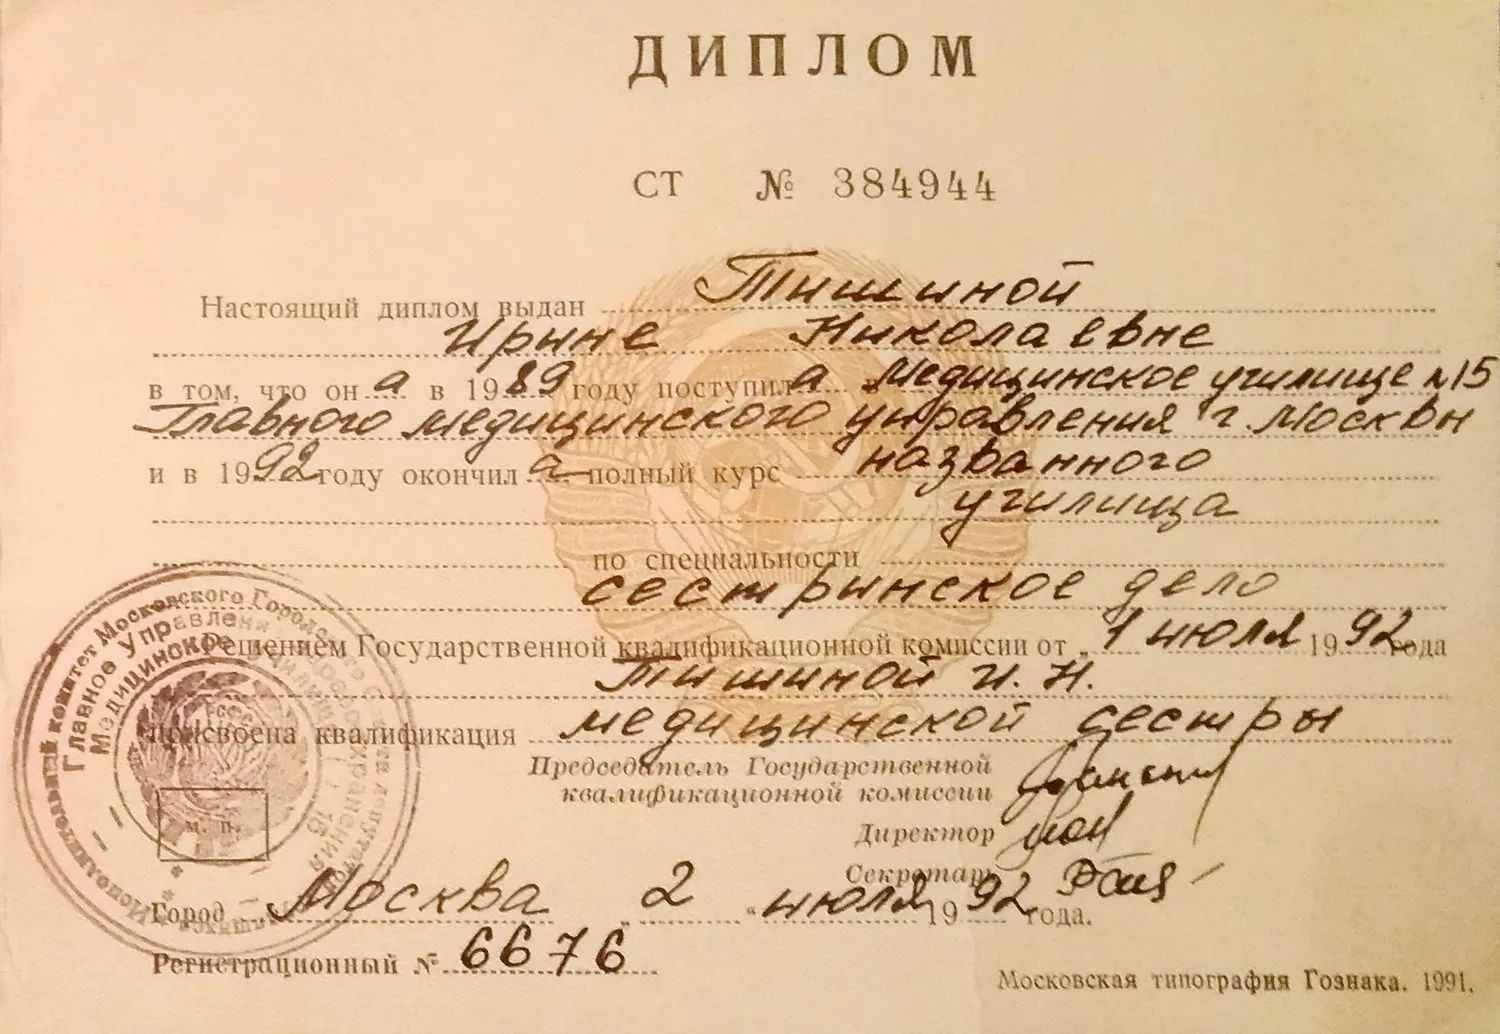 ДИПЛОМ
СТ № 384944
Настоящий диплом выдан Тишиной
Ирине Николаевне
в том, что он а в 1989 году поступил а в Медицинское училище №15
Главного медицинского управления г. Москвы
и в 1992 году окончил а полный курс названного
училища
по специальности
сестринское дело
Решением Государственной квалификационной комиссии от „1 июля 1992 года
Тишиной И. Н.
присвоена квалификация медицинской сестры
Председатель Государственной
квалификационной комиссии
Директор
Секретарь
Город Москва „2“ июля 1992 года.
Регистрационный № 6676
Московская типография Гознака. 1991.
Исполнительный комитет Московского Городского Совета
Главное Управление
Медицинское
м. п.
15